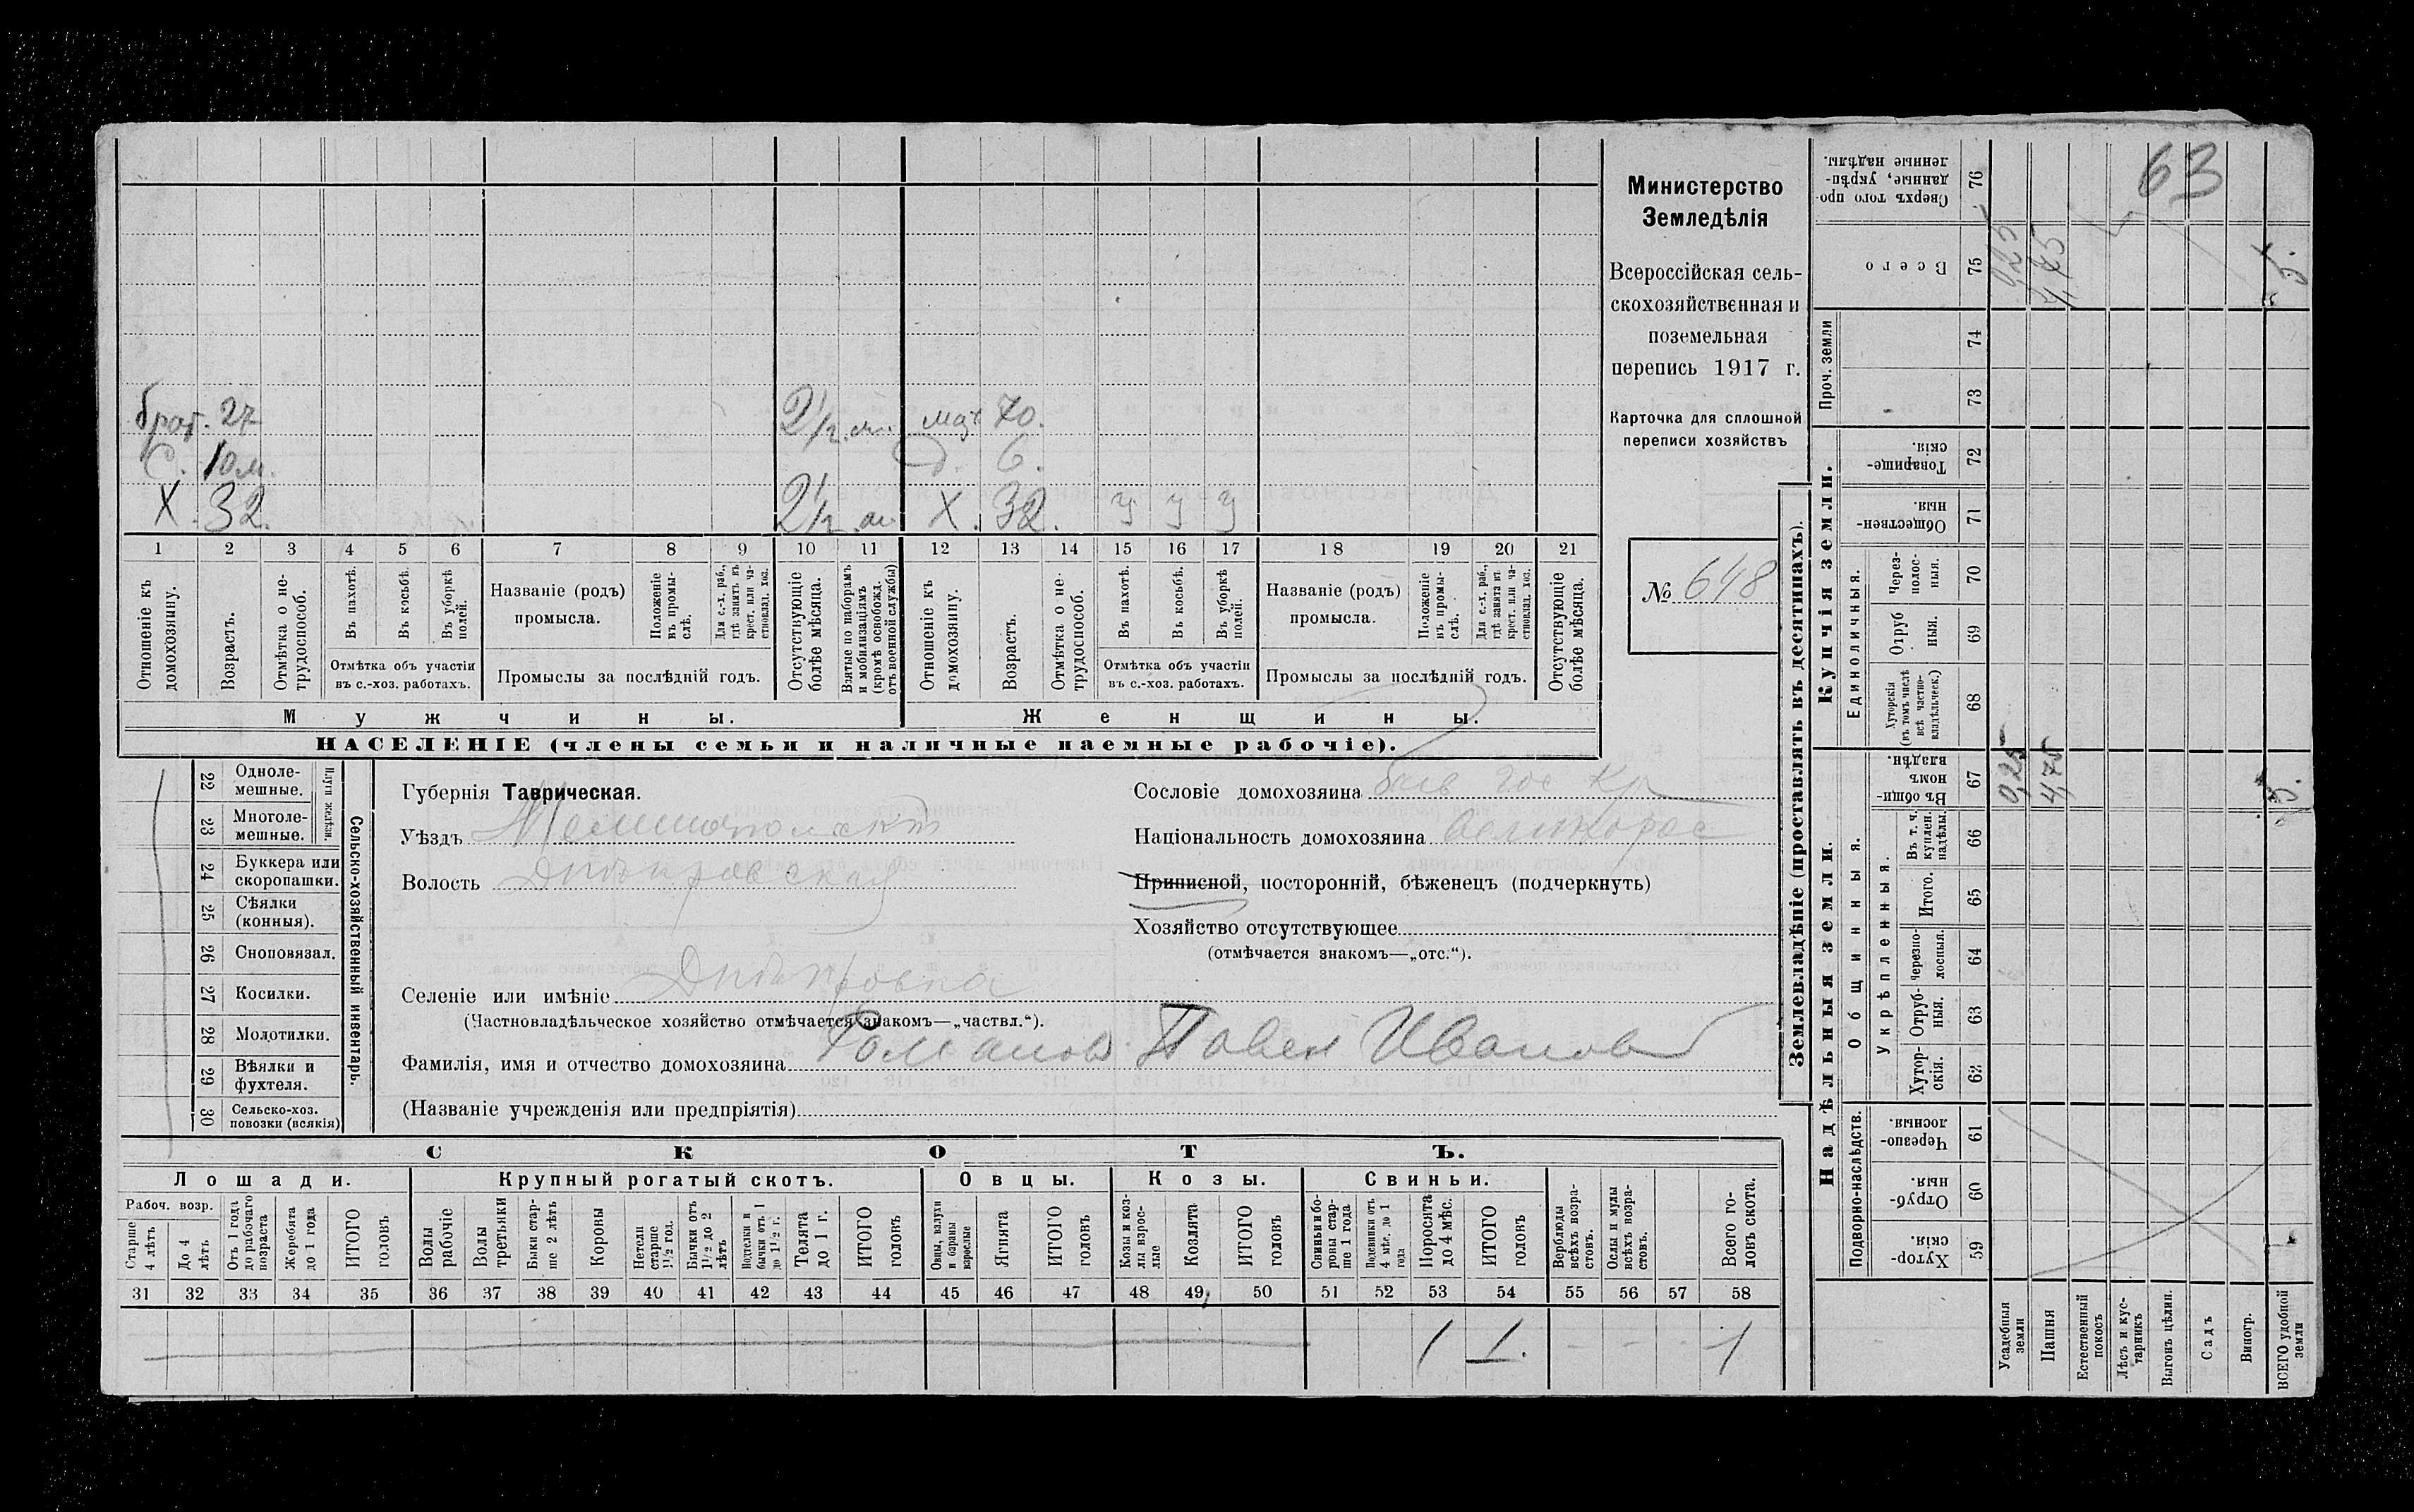 63
Министерство
Земледѣлія
Всероссійская сель-
скохозяйственная и
поземельная
перепись 1917 г.
Карточка для сплошной
переписи хозяйствъ
№ 648
брат. 27 2 1/2 м. мать 70.
С. 10 м. д. 6.
Х. 32. 2 1/2 м. Х. 32. У У У
1 2 3 4 5 6 7 8 9 10 11 12 13 14 15 16 17 18 19 20 21
Отношеніе къ домохозяину.
Возрастъ.
Отмѣтка о не-трудоспособ.
Въ пахотѣ.
Въ косьбѣ.
Въ уборкѣ полей.
Отмѣтка объ участіи
въ с.-хоз. работахъ.
Названіе (родъ)
промысла.
Положеніе въ промы-слѣ.
Для с.-х. раб., гдѣ занятъ въ крест. или ча-стновлад. хоз.
Промыслы за послѣдній годъ.
Отсутствующіе болѣе мѣсяца.
Взятые по наборамъ и мобилизаціямъ (кромѣ освобожд. отъ военной службы)
Отношеніе къ домохозяину.
Возрастъ.
Отмѣтка о не-трудоспособ.
Въ пахотѣ.
Въ косьбѣ.
Въ уборкѣ полей.
Отмѣтка объ участіи
въ с.-хоз. работахъ.
Названіе (родъ)
промысла.
Положеніе въ промы-слѣ.
Для с.-х. раб., гдѣ занята въ крест. или ча-стновлад. хоз.
Промыслы за послѣдній годъ.
Отсутствующіе болѣе мѣсяца.
Мужчины.
Женщины.
НАСЕЛЕНІЕ (члены семьи и наличные наемные рабочіе).
Сельско-хозяйственный инвентарь.
Плуги желѣзн.
22 Одноле-мешные.
23 Многоле-мешные.
24 Буккера или скоропашки.
25 Сѣялки (конныя).
26 Сноповязал.
27 Косилки.
28 Молотилки.
29 Вѣялки и фухтеля.
30 Сельско-хоз. повозки (всякія)
Губернія Таврическая.
Уѣздъ Мелитопольскій
Волость Днѣпровская
Селеніе или имѣніе Днѣпровка
(Частновладѣльческое хозяйство отмѣчается знакомъ—„частвл.“).
Фамилія, имя и отчество домохозяина Романов Павел Иванов
(Названіе учрежденія или предпріятія)
Сословіе домохозяина быв гос Кр
Національность домохозяина великорос
Приписной, посторонній, бѣженецъ (подчеркнуть)
Хозяйство отсутствующее
(отмѣчается знакомъ—„отс.“).
СКОТЪ.
Лошади.
Крупный рогатый скотъ.
Овцы.
Козы.
Свиньи.
Рабоч. возр.
Старше 4 лѣтъ
До 4 лѣтъ
Отъ 1 года до рабочаго возраста
Жеребята до 1 года
ИТОГО головъ
Волы рабочіе
Волы третьяки
Быки стар-ше 2 лѣтъ
Коровы
Нетели старше 1 1/2 год.
Бычки отъ 1 1/2 до 2 лѣтъ
Подтелки и бычки отъ 1 до 1 1/2 г.
Телята до 1 г.
ИТОГО головъ
Овцы, валухи и бараны взрослые
Ягнята
ИТОГО головъ
Козы и коз-лы взрос-лые
Козлята
ИТОГО головъ
Свиньи и бо-ровы стар-ше 1 года
Подсвинки отъ 4 мѣс. до 1 года
Поросята до 4 мѣс.
ИТОГО головъ
Верблюды всѣхъ возра-стовъ.
Ослы и мулы всѣхъ возра-стовъ.
Всего го-ловъ скота.
31 32 33 34 35 36 37 38 39 40 41 42 43 44 45 46 47 48 49 50 51 52 53 54 55 56 57 58
1 1. - - 1
Землевладѣніе (проставлять въ десятинахъ).
Надѣльныя земли.
Купчія земли.
Проч. земли
Подворно-наслѣдств.
Общинныя.
Укрѣпленныя.
Единоличныя.
Сверхъ того про-данные, укрѣп-ленные надѣлы. 76
Всего 75 0,25 4,75 5.
74
73
Товарище-скія. 72
Обществен-ныя. 71
Через-полос-ныя. 70
Отруб ныя. 69
Хуторскія (въ томъ числѣ всѣ частно-владѣльческ.) 68
Въ общи-номъ владѣн. 67 0,25 4,75 5.
Въ т. ч. куплен. надѣлы. 66
Итого. 65
Черезпо-лосныя. 64
Отруб-ныя. 63
Хутор-скія. 62
Черезпо-лосныя. 61
Отруб-ныя. 60
Хутор-скія. 59
Усадебныя земли
Пашня
Естественный покосъ
Лѣсъ и кус-тарникъ
Выгонъ цѣлин.
Садъ
Виногр.
ВСЕГО удобной земли